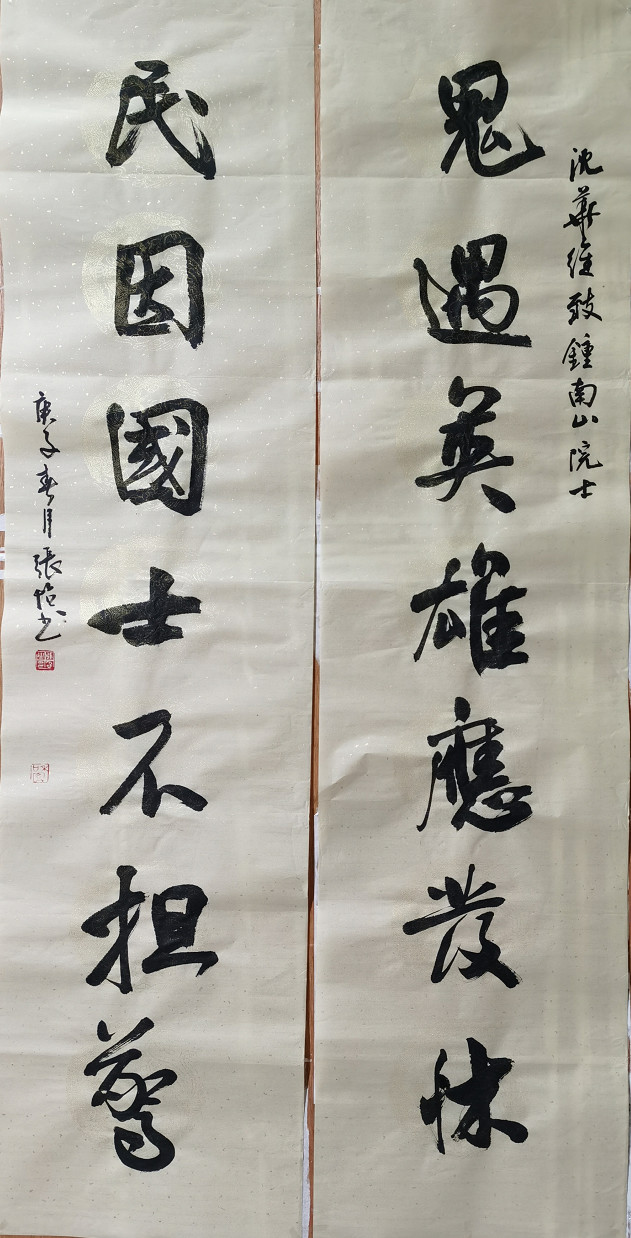 沈華維致鍾南山院士
鬼遇英雄應發怵
民因國士不担驚
庚子春月張